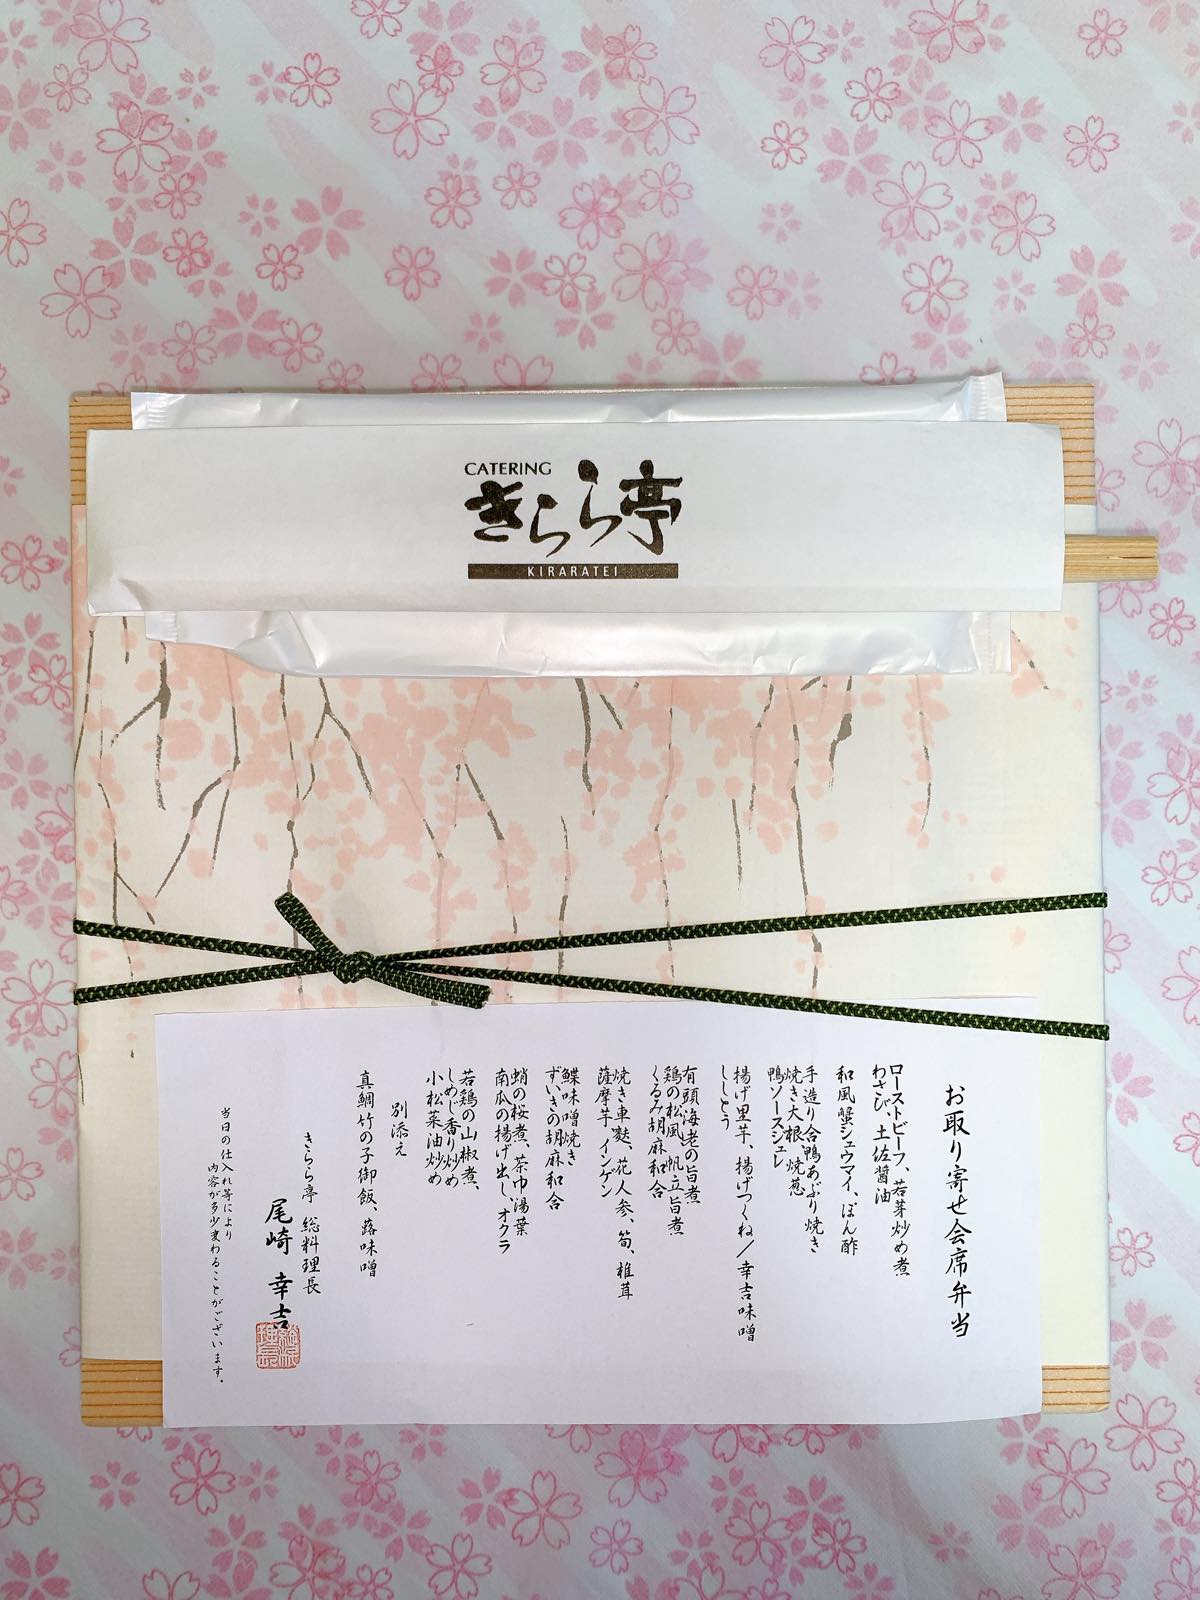 CATERING
きらら亭
KIRARATEI
お取り寄せ会席弁当
ローストビーフ、若芽炒め煮
わさび、土佐醤油
和風蟹シュウマイ、ぽん酢
手造り合鴨あぶり焼き
焼き大根、焼葱
鴨ソースジュレ
揚げ里芋、揚げつくね/幸吉味噌
ししとう
有頭海老の旨煮
鶏の松風、帆立旨煮
くるみ胡麻和合
焼き車麩、花人参、筍、椎茸
薩摩芋、インゲン
鰈味噌焼き
ずいきの胡麻和合
蛸の桜煮、茶巾湯葉
南瓜の揚げ出し、オクラ
若鶏の山椒煮、
しめじ香り炒め
小松菜油炒め
別添え
真鯛竹の子御飯、蕗味噌
きらら亭 総料理長
尾崎 幸吉
当日の仕入れ等により
内容が多少変わることがございます。